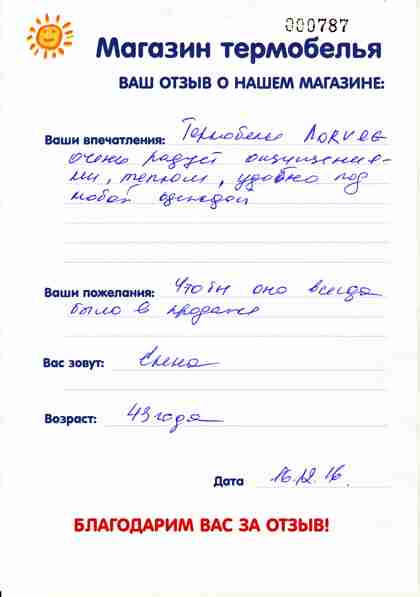 000787
Магазин термобелья
ВАШ ОТЗЫВ О НАШЕМ МАГАЗИНЕ:
Ваши впечатления: Термобелье NORVEG
очень радует ощущения-
ми, теплом, удобно под
любой одеждой
Ваши пожелания: Чтобы оно всегда
было в продаже
Вас зовут: Елена
Возраст: 43 года
Дата 16.12.16.
БЛАГОДАРИМ ВАС ЗА ОТЗЫВ!